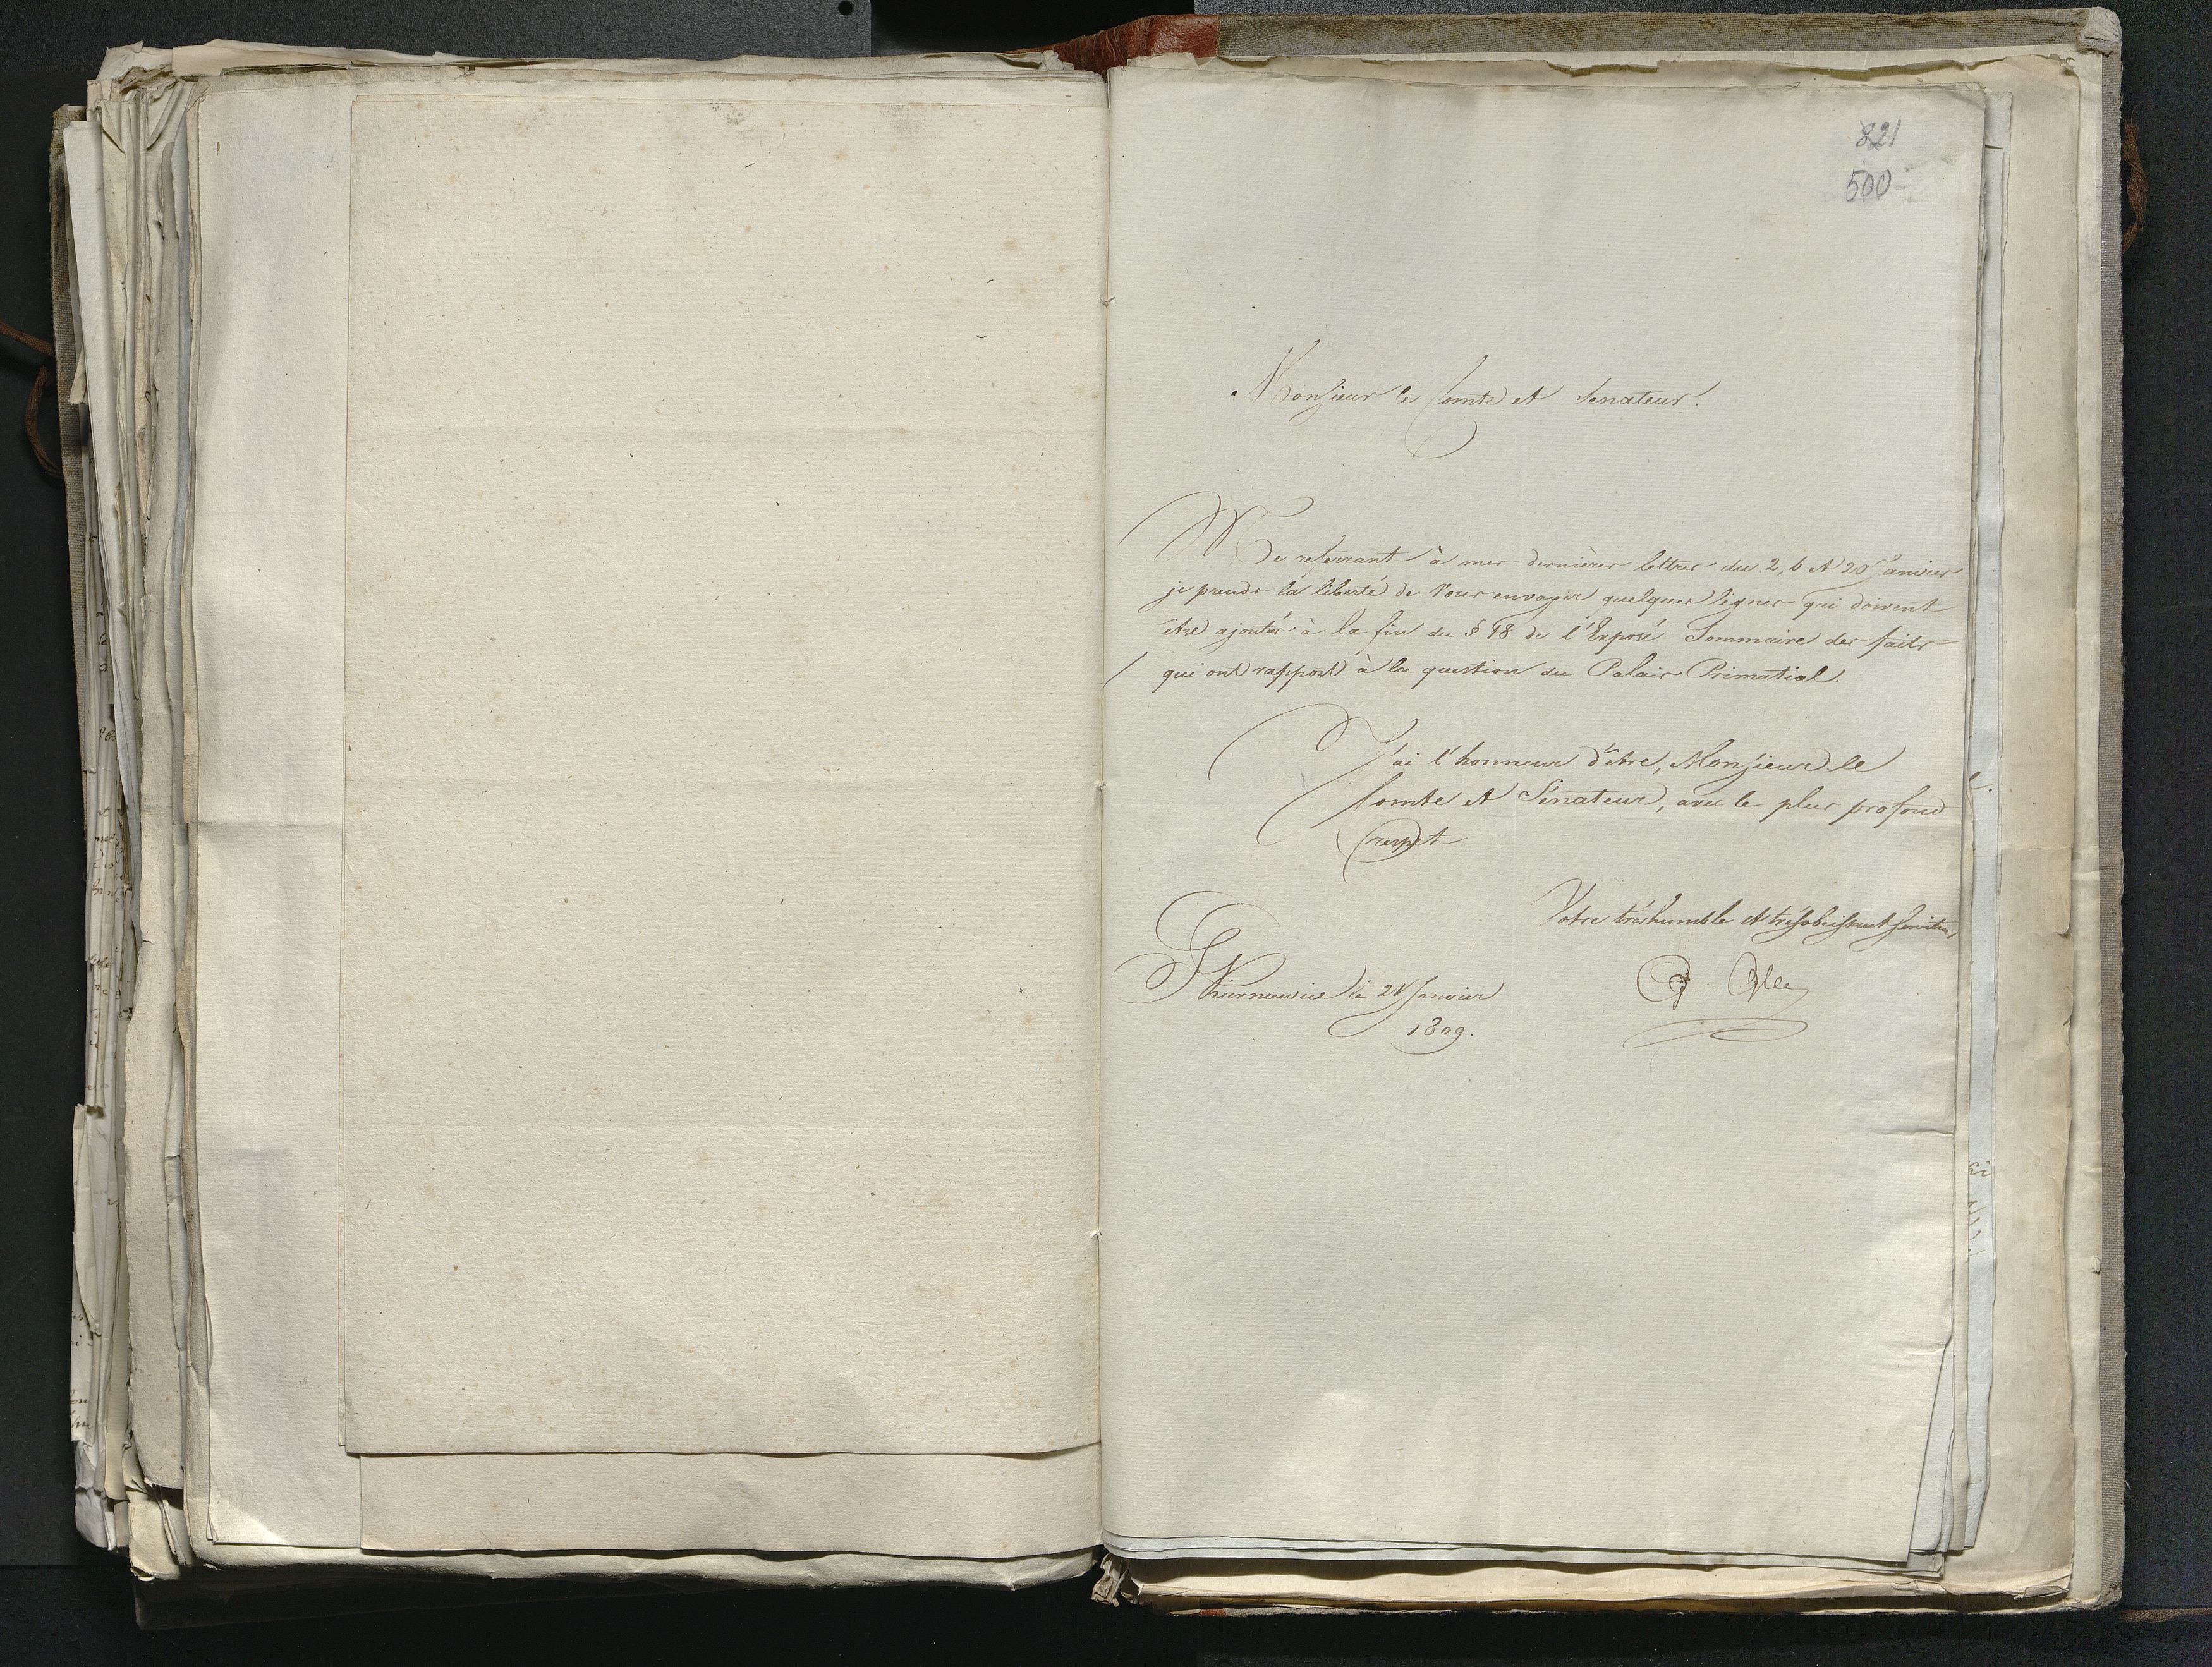 321
500
Monsieur le Comte et Senateur!
Me referrant à mes dernières lettres du 2, 6 et 20 Janvier
je prends la liberté de Vous envoyer quelques lignes qui doivent
être ajoutés à la fin du § 18 de l'Exposé Sommaire des faits
qui ont rapport à la question du Palais Primatial.
J'ai l'honneur d'être, Monsieur le
Comte et Sénateur, avec le plus profond
respet
Votre tréshumble et trésobeissant serviteur
Skierniewice le 21 Janvier
1809.